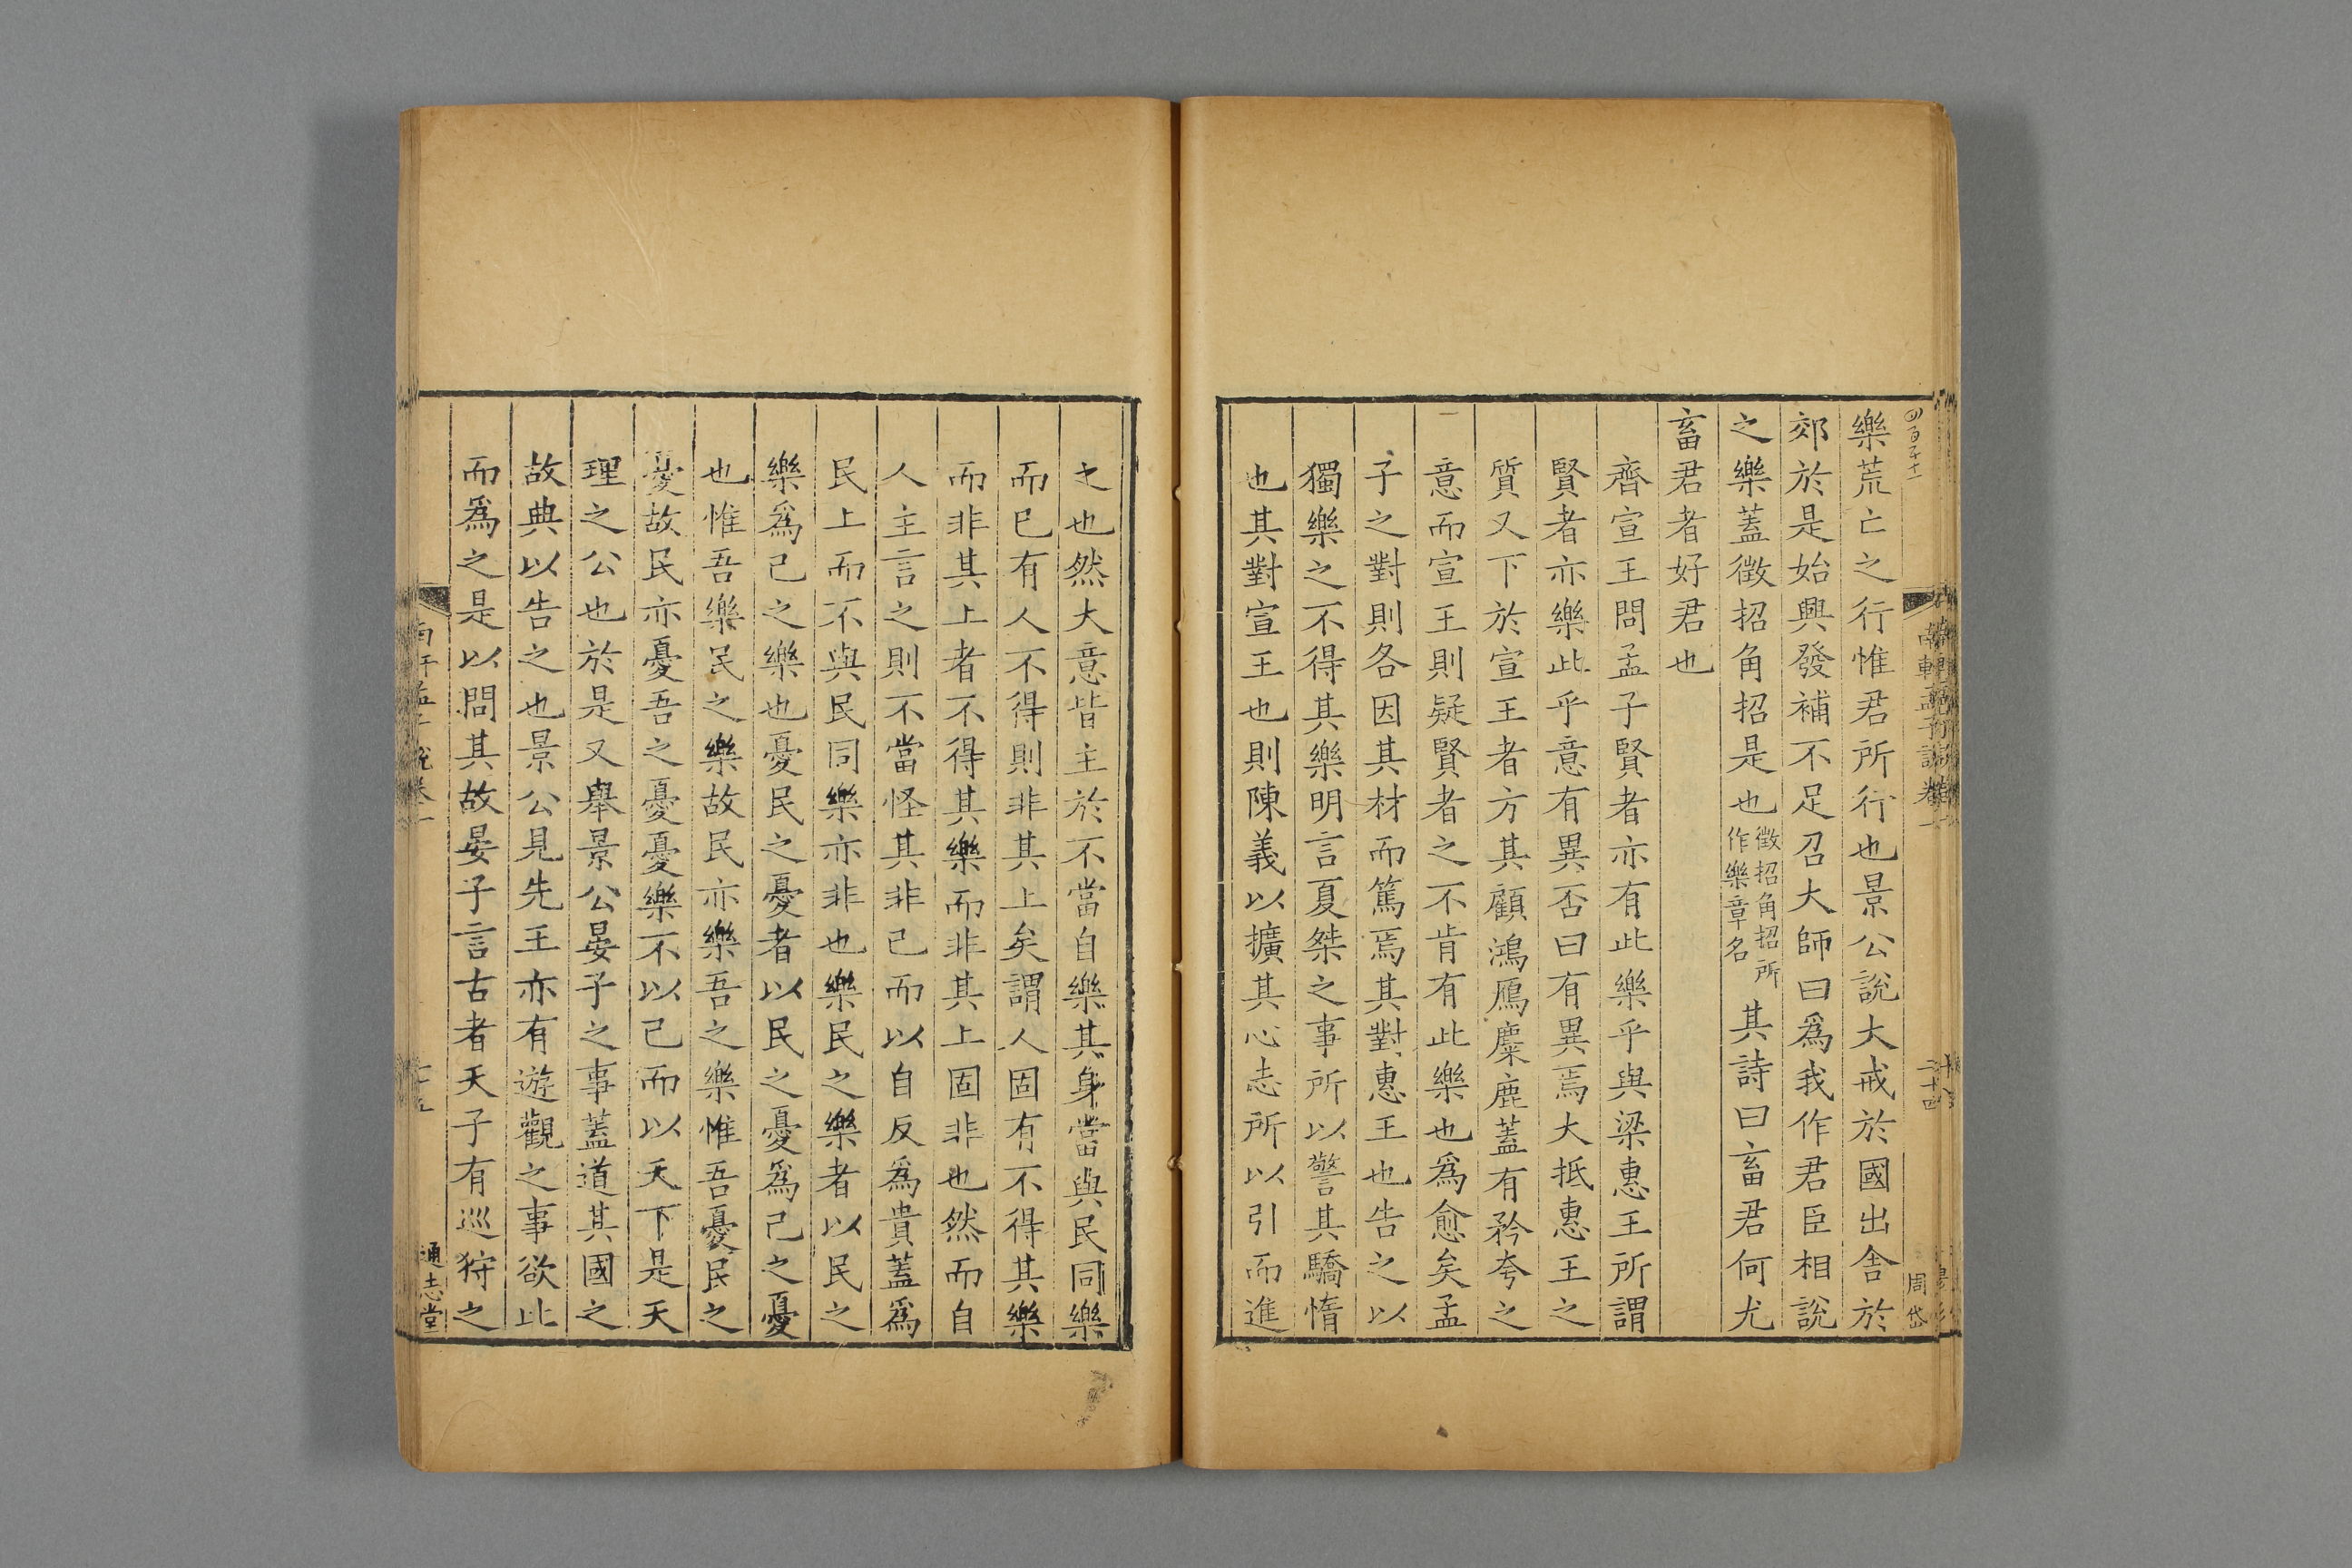 樂荒亡之行惟君所行也景公說大戒於國出舍於
郊於是始興發補不足召大師曰爲我作君臣相說
之樂蓋徵招角招是也徵招角招所作樂章名其詩曰畜君何尤
畜君者好君也
齊宣王問孟子賢者亦有此樂乎與梁惠王所謂
賢者亦樂此乎意有異否曰有異焉大抵惠王之
質又下於宣王者方其顧鴻鴈麋鹿蓋有矜夸之
意而宣王則疑賢者之不肯有此樂也爲愈矣孟
子之對則各因其材而篤焉其對惠王也告之以
獨樂之不得其樂明言夏桀之事所以警其驕惰
也其對宣王也則陳義以擴其心志所以引而進
之也然大意皆主於不當自樂其身當與民同樂
而已有人不得則非其上矣謂人固有不得其樂
而非其上者不得其樂而非其上固非也然而自
人主言之則不當怪其非己而以自反爲貴蓋爲
民上而不與民同樂亦非也樂民之樂者以民之
樂爲己之樂也憂民之憂者以民之憂爲己之憂
也惟吾樂民之樂故民亦樂吾之樂惟吾憂民之
憂故民亦憂吾之憂憂樂不以己而以天下是天
理之公也於是又舉景公晏子之事蓋道其國之
故典以告之也景公見先王亦有遊觀之事欲比
而爲之是以問其故晏子言古者天子有巡狩之
通志堂
周岱
二十四